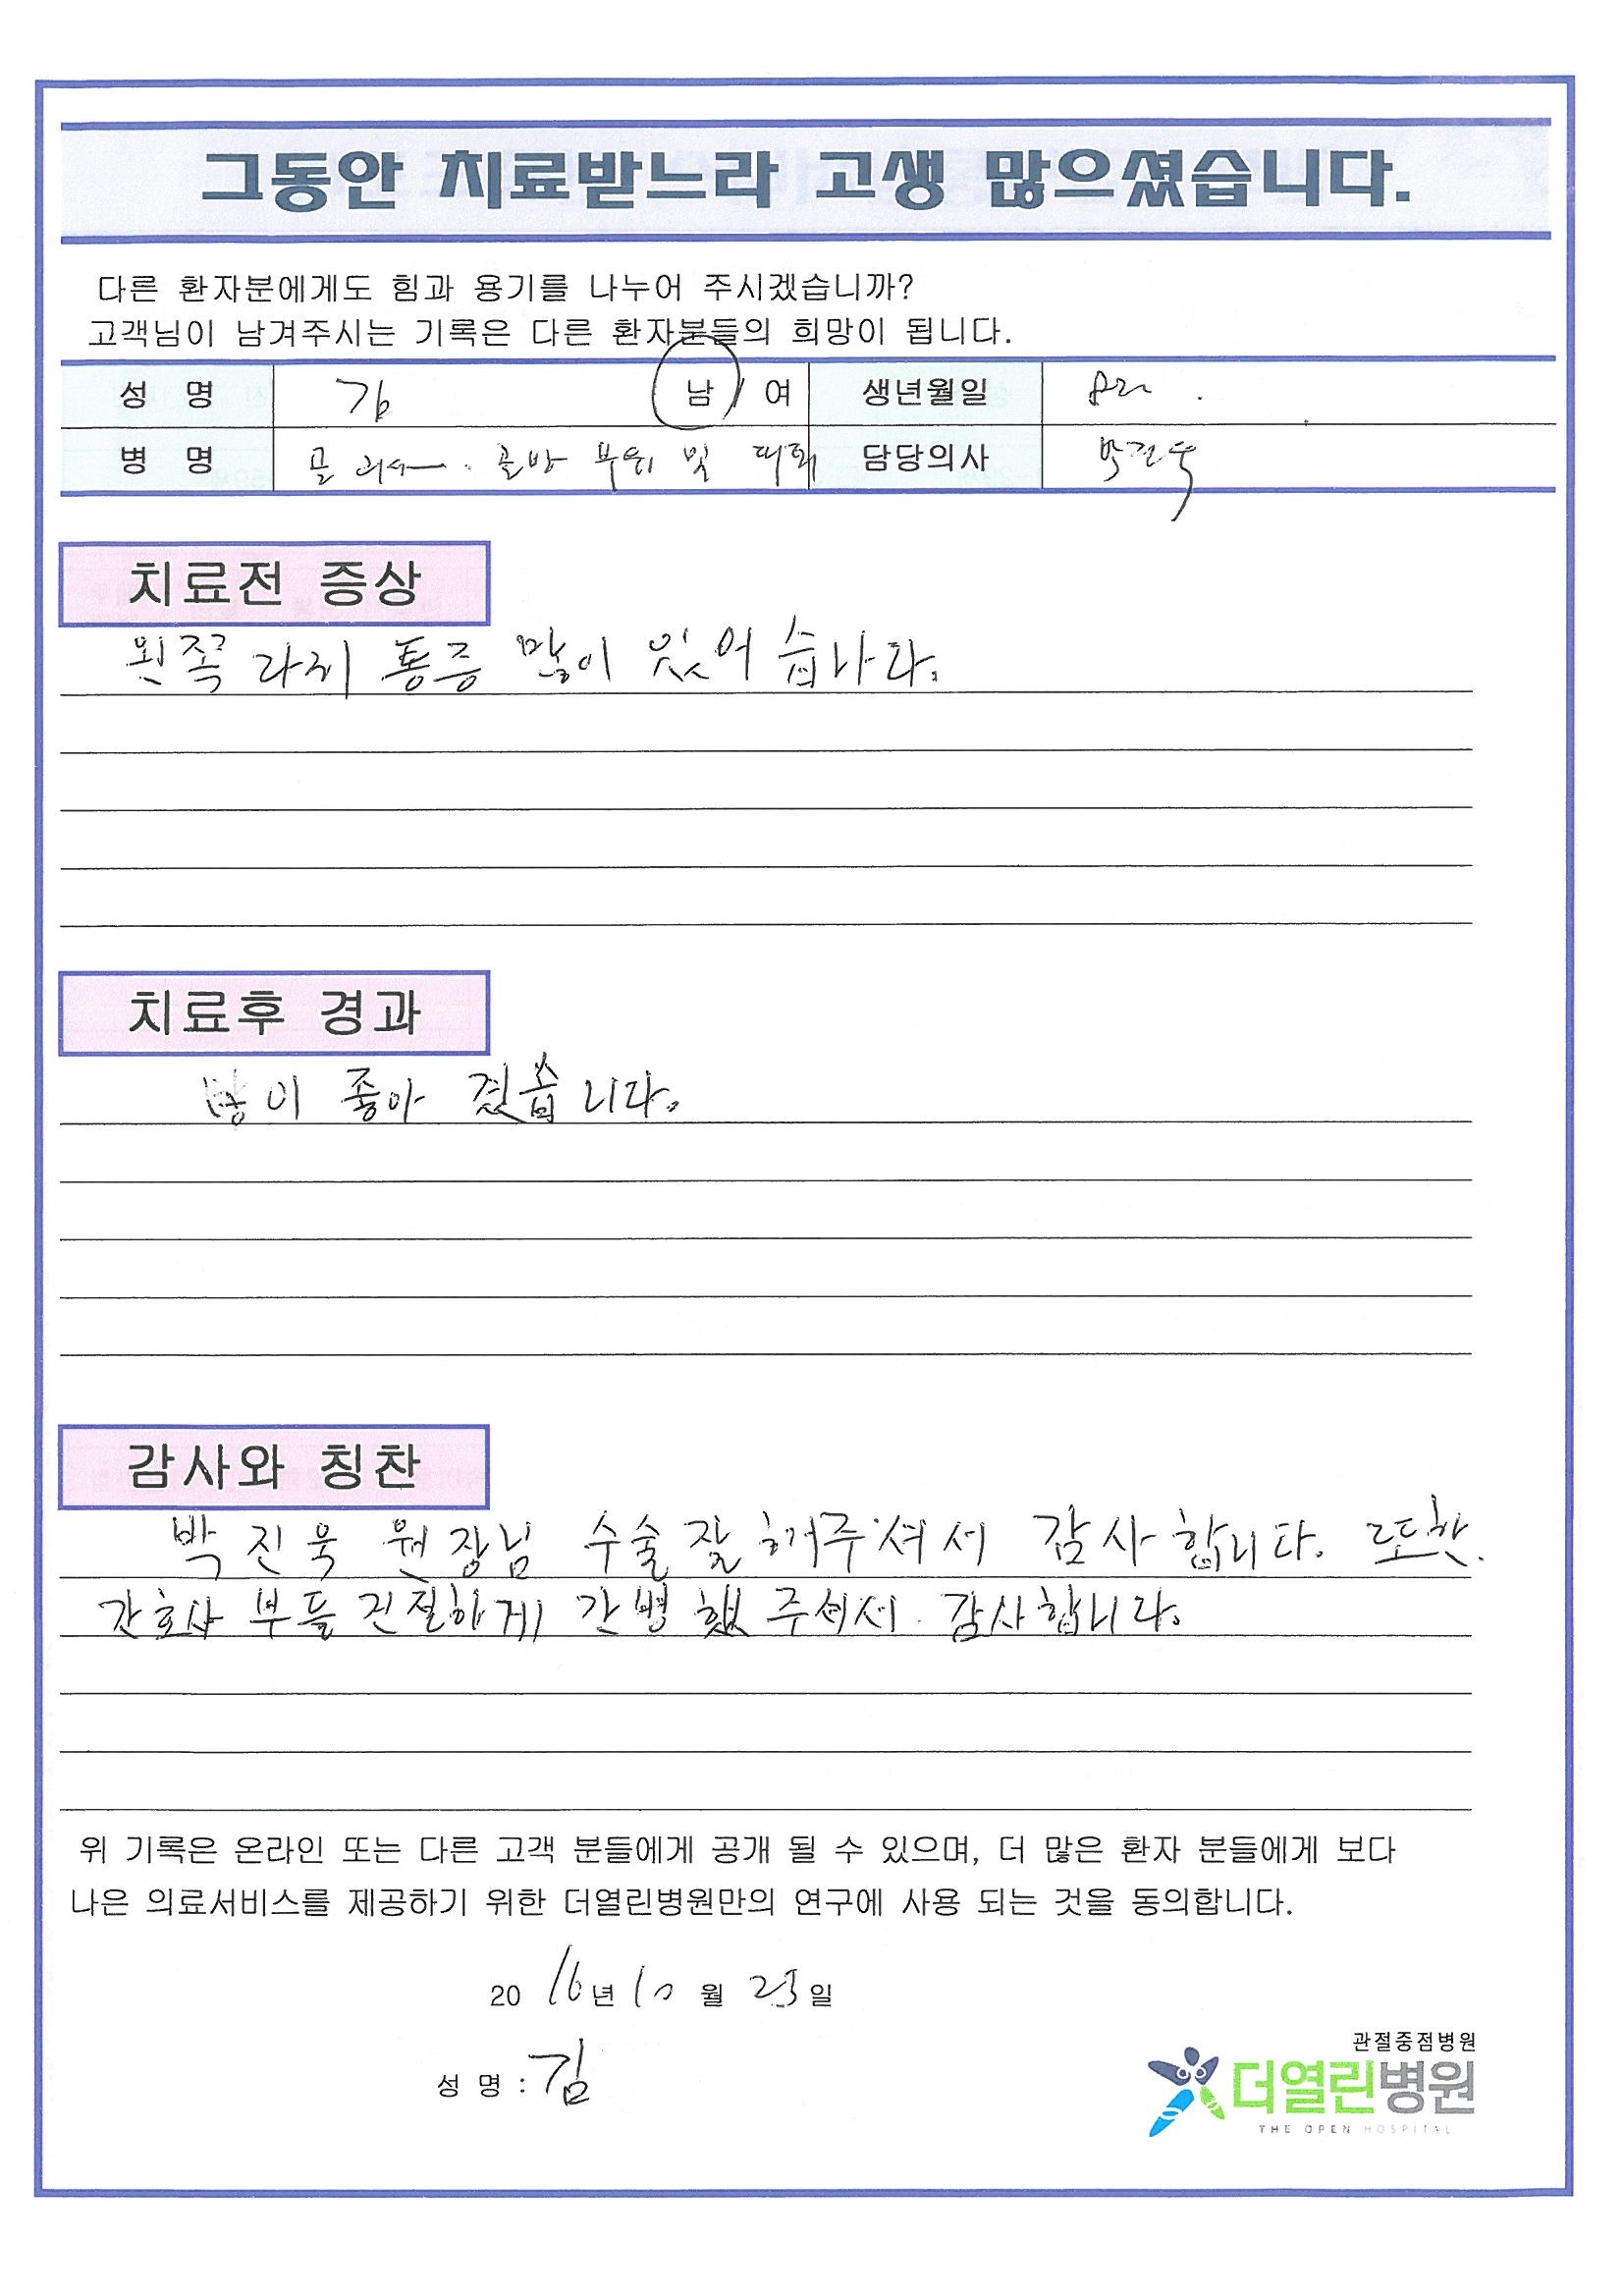 그동안 치료받느라 고생 많으셨습니다.
다른 환자분에게도 힘과 용기를 나누어 주시겠습니까?
고객님이 남겨주시는 기록은 다른 환자분들의 희망이 됩니다.
성 명 김 남 / 여 생년월일
병 명 골 괴사 . 골반 부위 및 대퇴 담당의사 박진욱
치료전 증상
왼쪽 다리 통증 많이 있어 습니다.
치료후 경과
많이 좋아 졌씁니다.
감사와 칭찬
박진욱 원장님 수술 잘 해주셔서 감사합니다. 또한.
간호사 부들 친절하게 간병 했 주셔서. 감사합니다.
위 기록은 온라인 또는 다른 고객 분들에게 공개 될 수 있으며, 더 많은 환자 분들에게 보다
나은 의료서비스를 제공하기 위한 더열린병원만의 연구에 사용 되는 것을 동의합니다.
20 16년 10 월 25일
성 명 : 김
관절중점병원
더열린병원
THE OPEN HOSPITAL